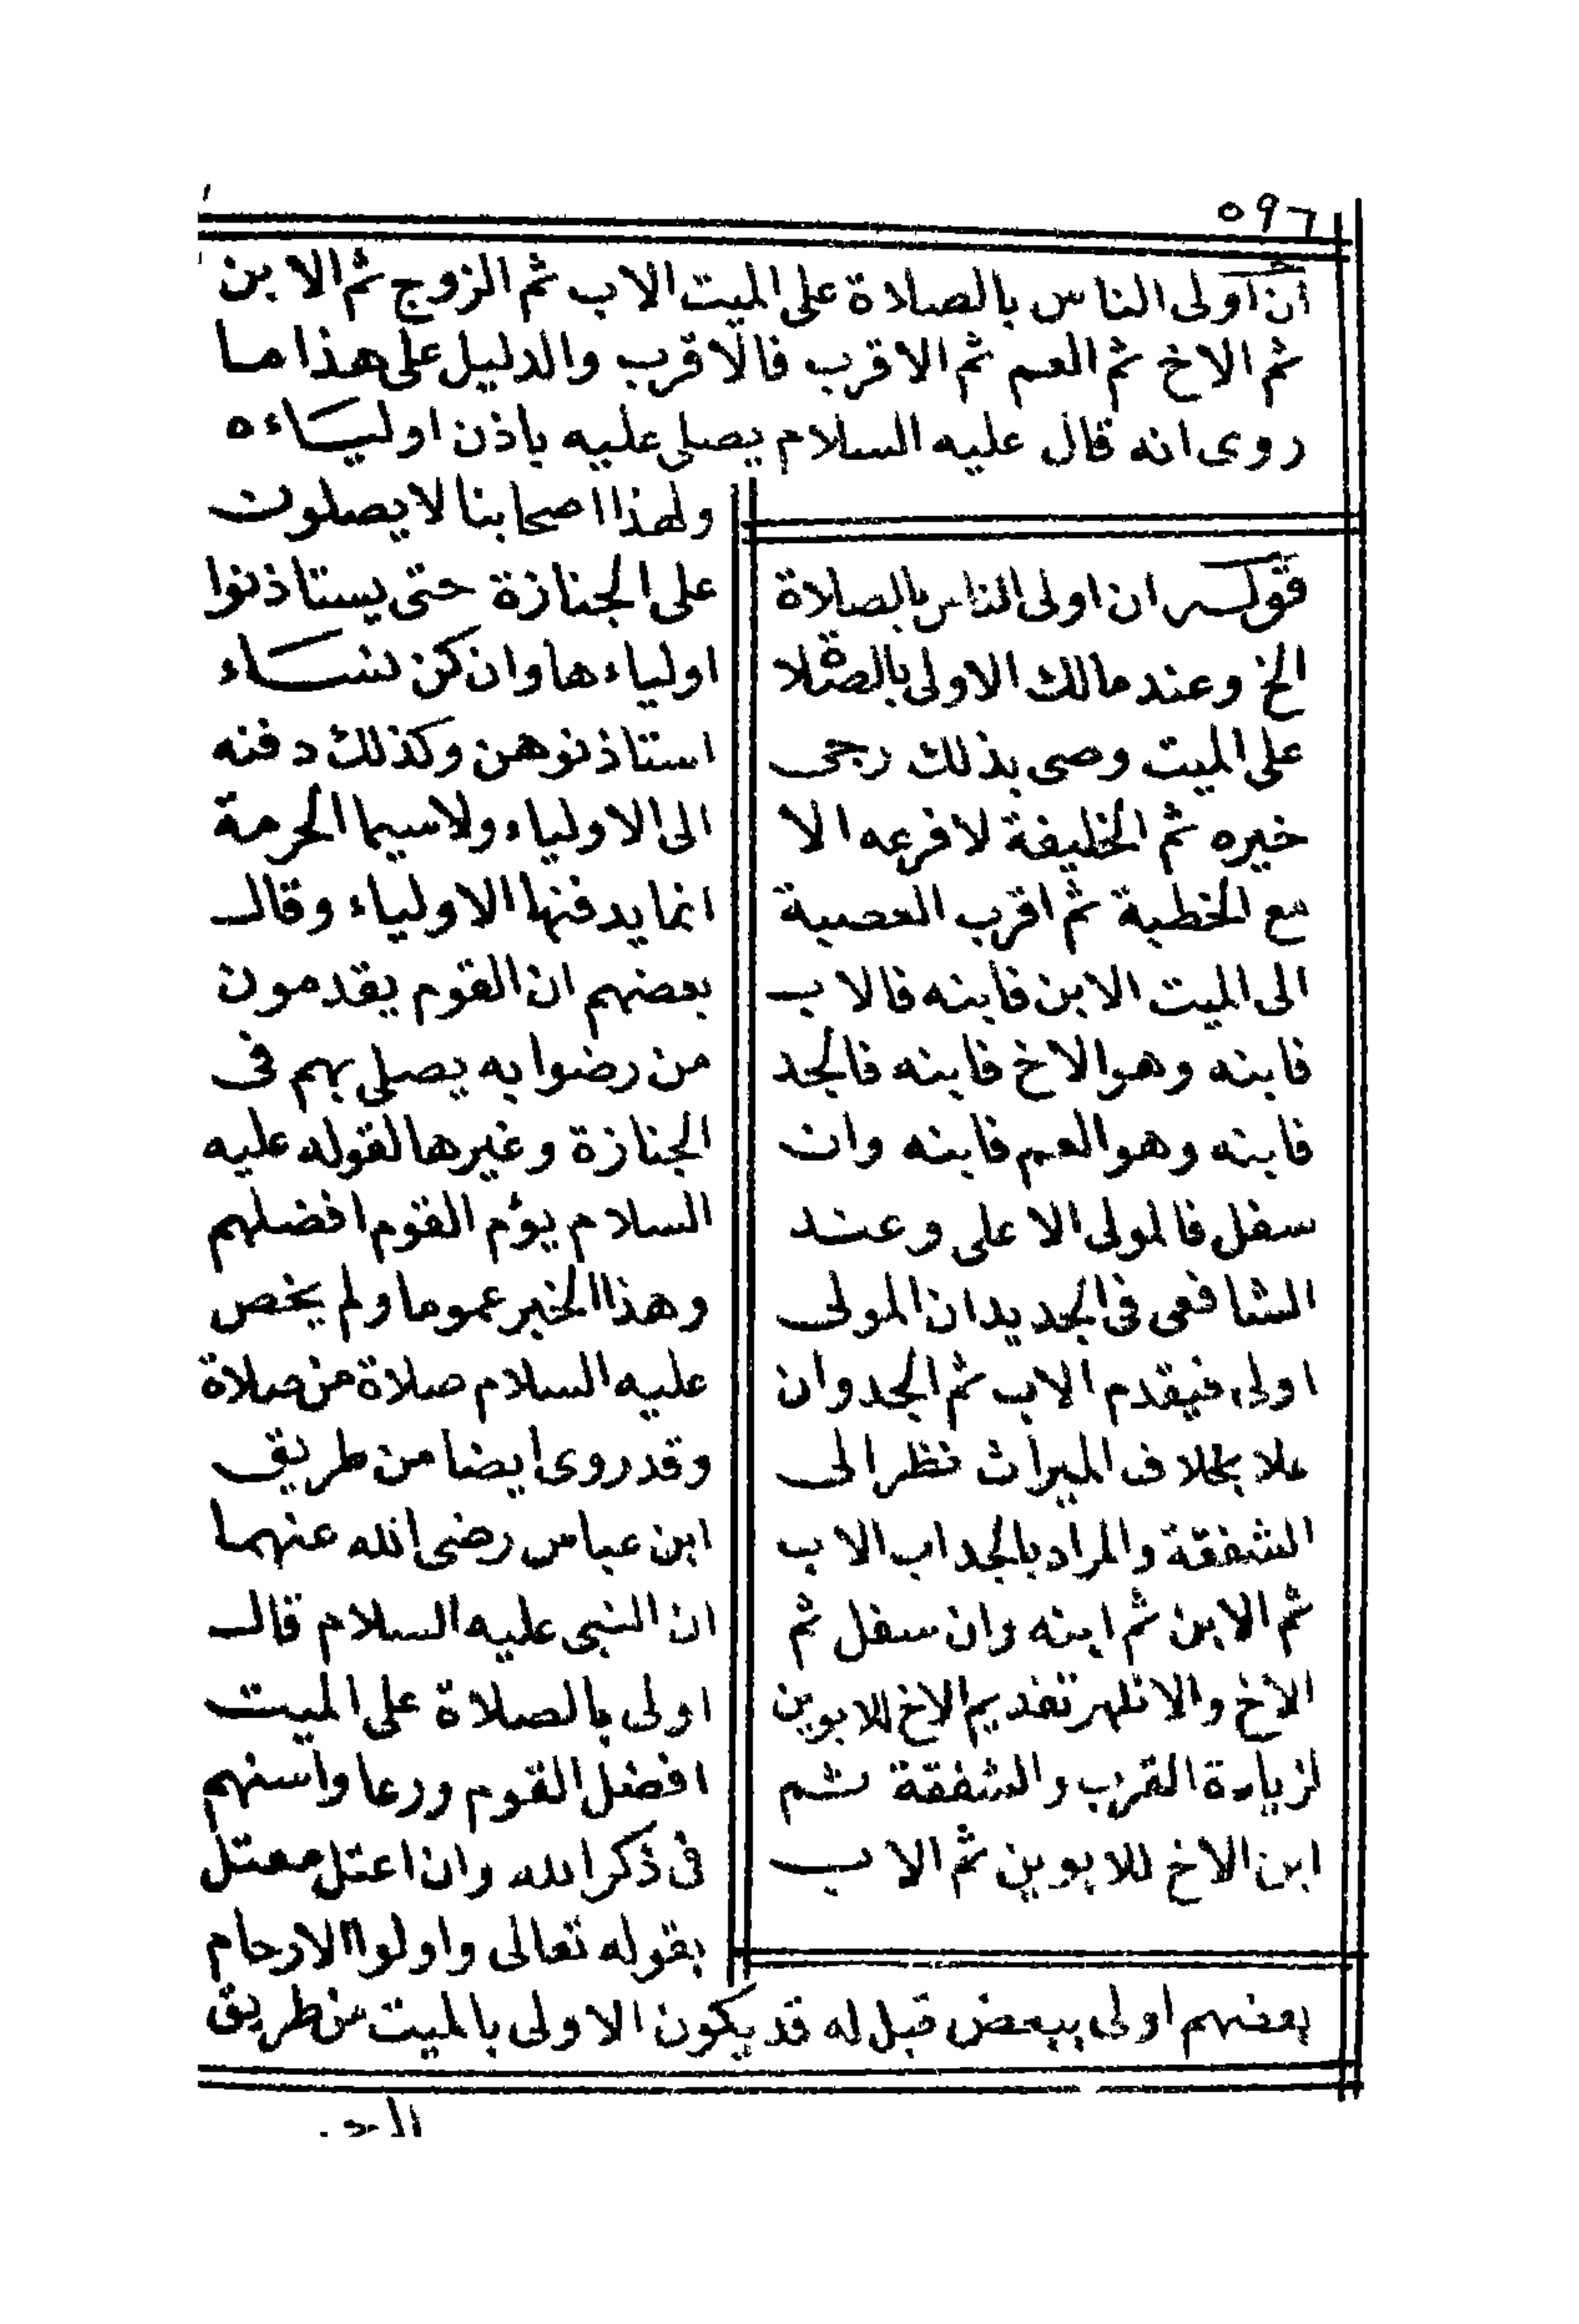 ٥٩٦
ان اولى الناس بالصلاة على الميت الاب ثم الزوج ثم الابن
ثم الاخ ثم العم ثم الاقرب فالاقرب والدليل على هذا ما
روى انه قال عليه السلام يصلى عليه باذن اولياءه
ولهذا اصحابنا لا يصلون
على الجنازة حتى يستاذنوا
اولياءها وان كن نساء
استاذنوهن وكذلك دفنه
الى الاولياء ولاسيما الحرمة
انما يدفنها الاولياء وقال
بعضهم ان القوم يقدمون
من رضوا به يصلى بهم فى
الجنازة وغيرها لقوله عليه
السلام يؤم القوم افضلهم
وهذا الخبر عموما ولم يخص
عليه السلام صلاة من صلاة
وقد روى ايضا من طريق
ابن عباس رضى الله عنهما
ان النبى عليه السلام قال
اولى بالصلاة على الميت
افضل القوم ورعا واسنهم
فى ذكر الله وان اعتل معتل
بقوله تعالى واولوا الارحام
قوله ان اولى الناس بالصلاة
الخ وعند مالك الاولى بالصلاة
على الميت وصى بذلك رجى
خيره ثم الخليفة لا فرعه الا
مع الخطبة ثم اقرب العصبة
الى الميت الابن فابنه فالاب
فابنه وهو الاخ فابنه فالجد
فابنه وهو العم فابنه وان
سفل فالمولى الاعلى وعند
الشافعى فى الجديد ان المولى
اولى فيقدم الاب ثم الجد وان
علا بخلاف الميراث نظر الى
الشفقة والمراد بالجد اب الاب
ثم الابن ثم ابنه وان سفل ثم
الاخ والاظهر تقديم الاخ للابوين
لزيادة القرب والشفقة ثم
ابن الاخ للابوين ثم الاب
بعضهم اولى ببعض قيل له قد يكون الاولى بالميت من طريق